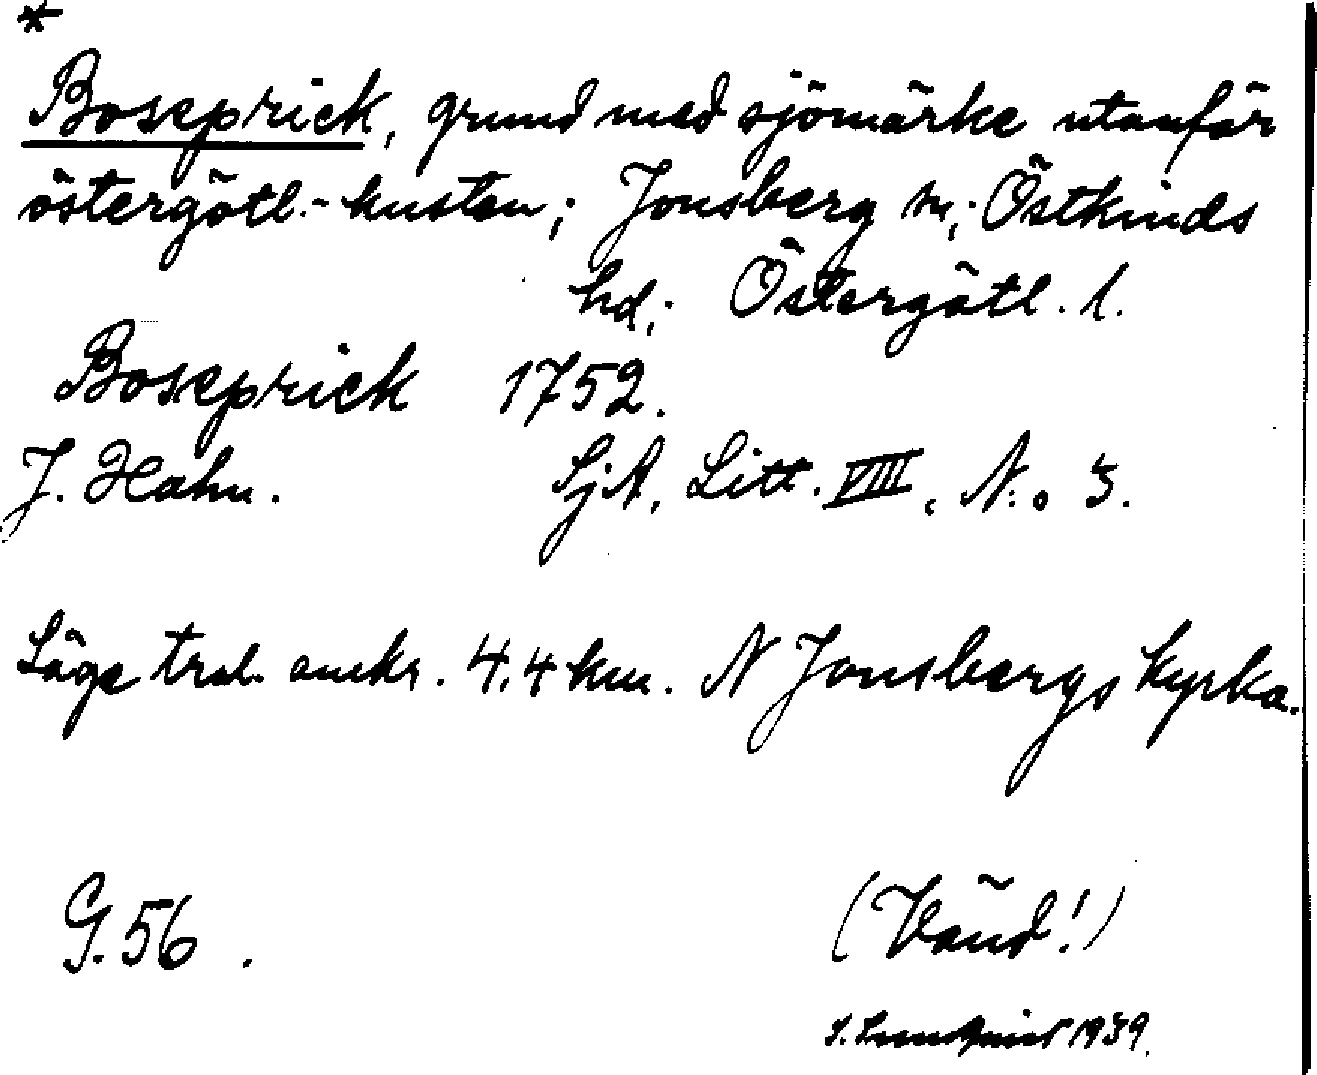 *
Boseprick, grund med sjömärke utanför
östergötl.-kusten; Jonsberg sn; Östkinds
hd; Östergötl. l.
Boseprick 1752.
J. Hahn. SjA, Litt. VIII, N:o 3.
Läge trol. omkr. 4,4 km. N Jonsbergs kyrka.
G. 56.
(Vänd!)
S. Lundqvist 1939.